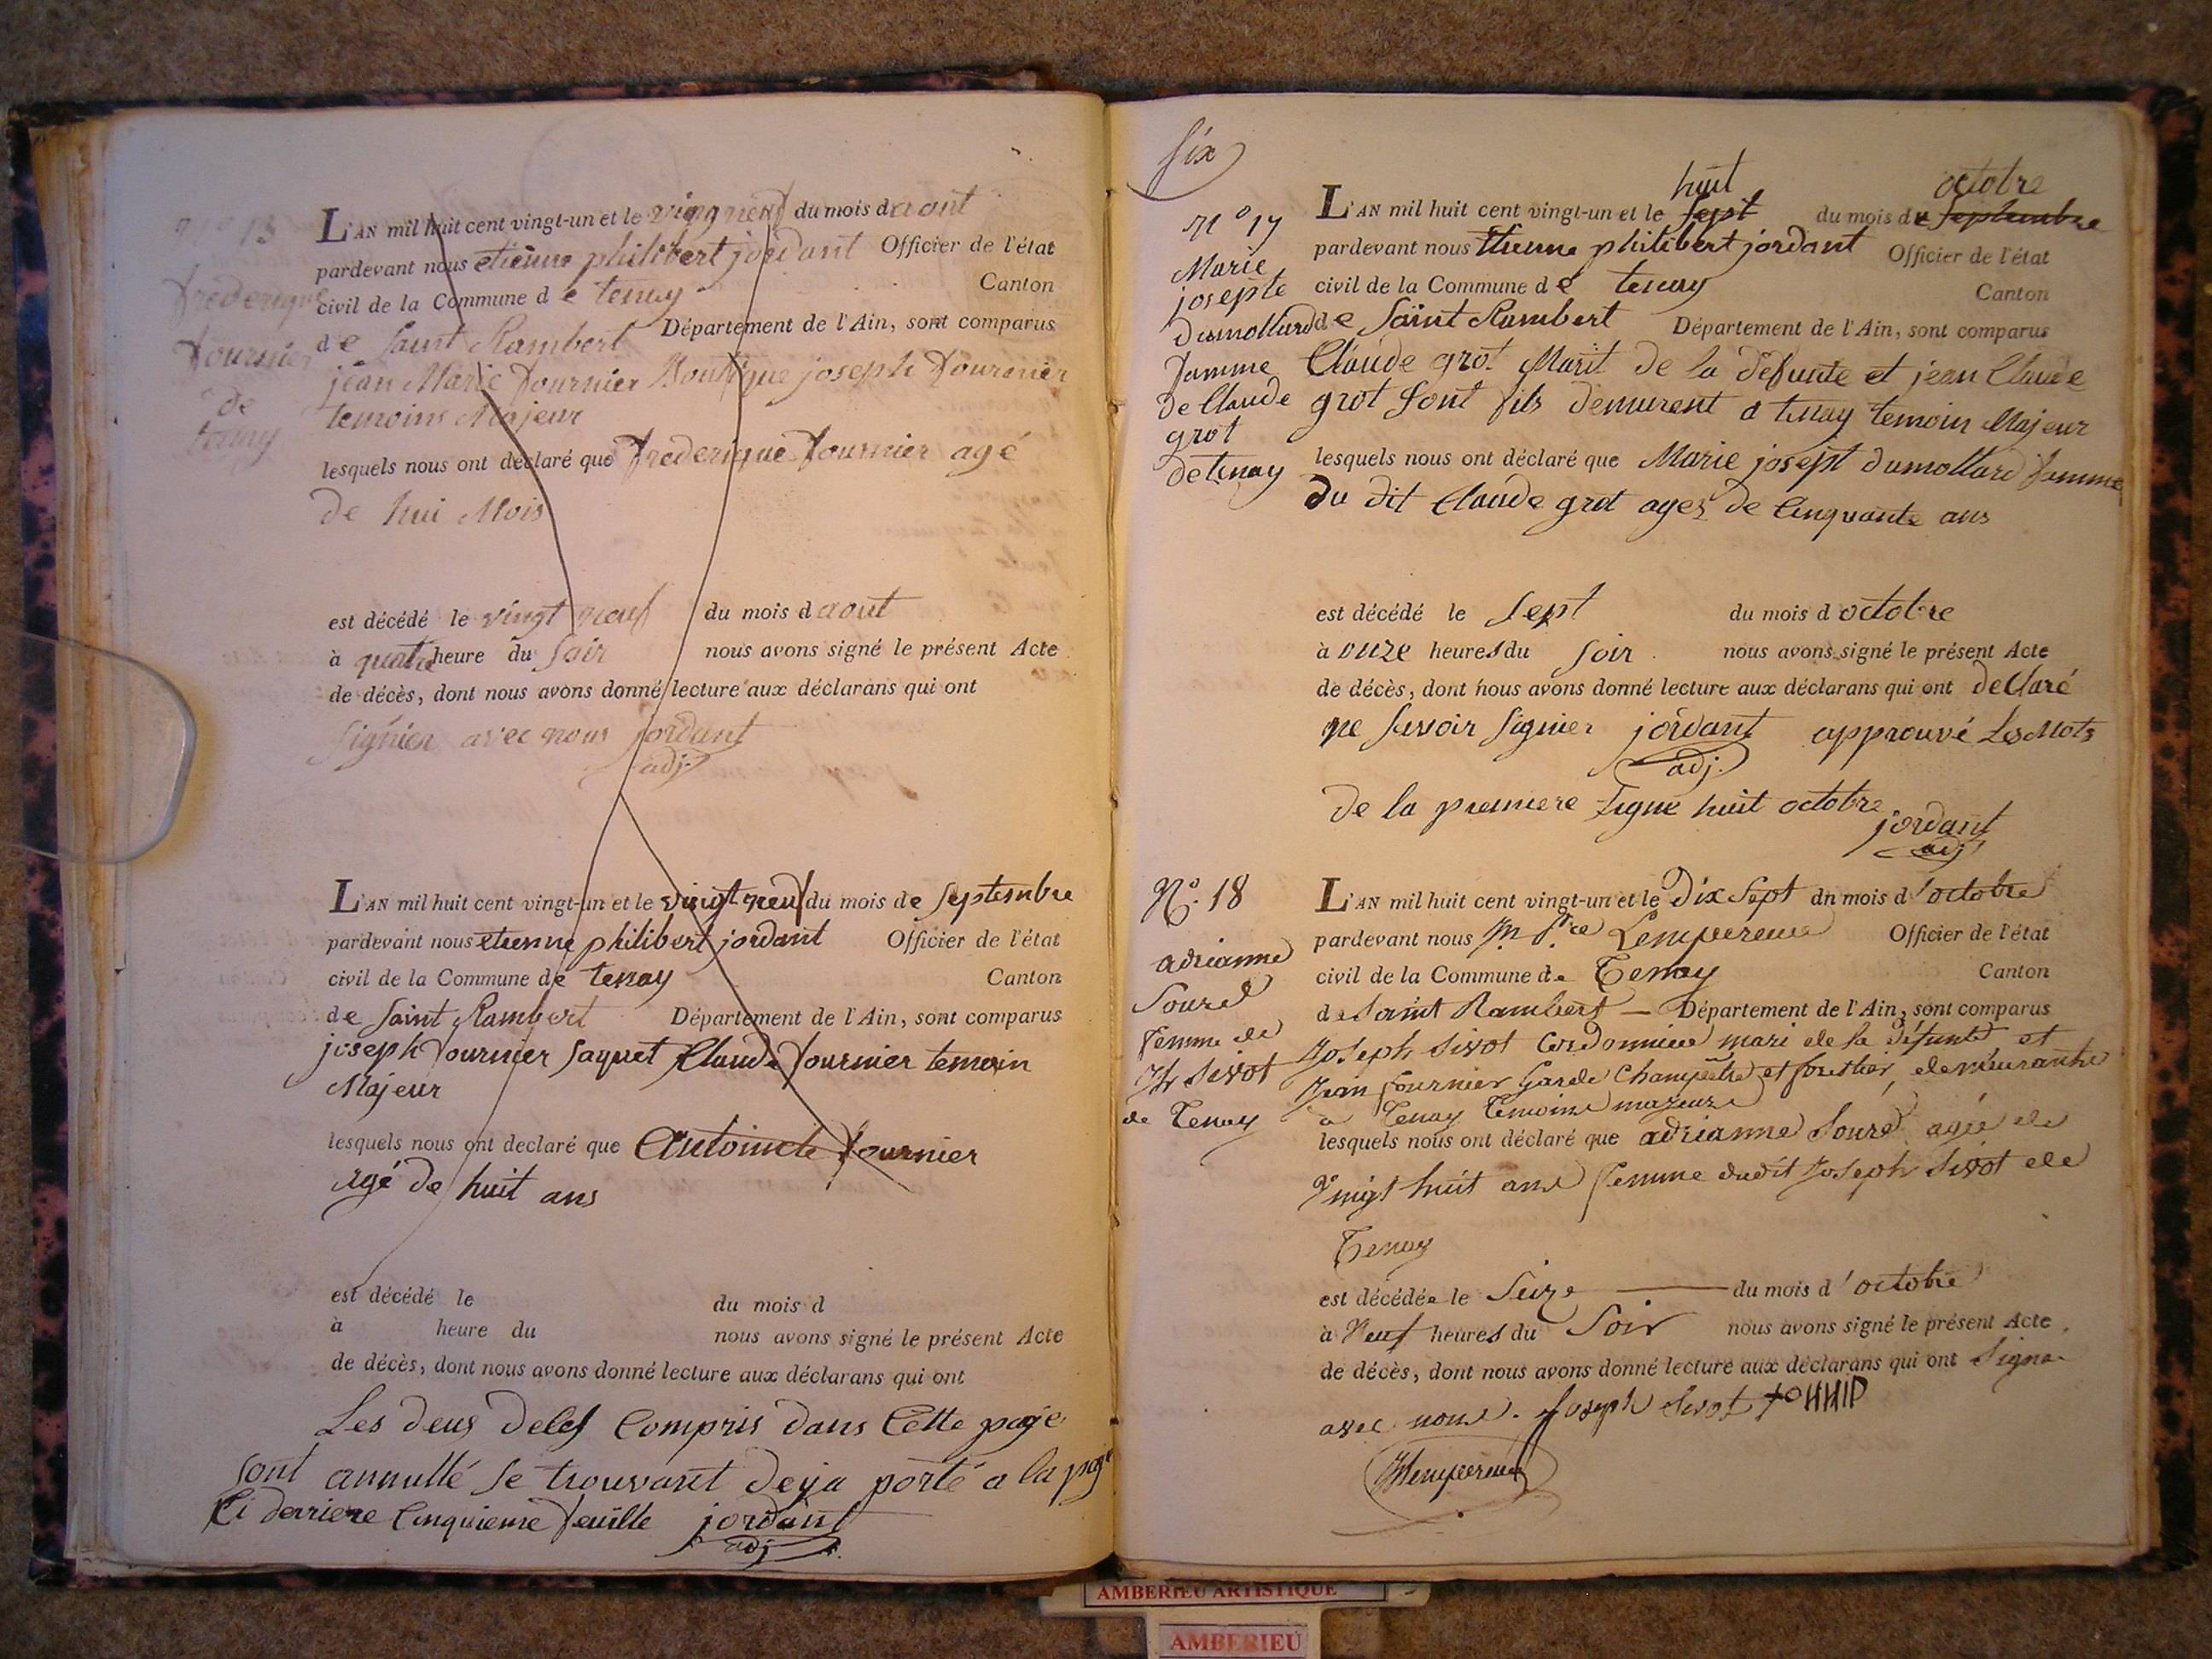 N° 13
frederique
fournier
de
tenay
L'AN mil huit cent vingt-un et le vingneuf du mois daout
pardevant nous etienne philibert jordant Officier de l'état
civil de la Commune de tenay Canton
de Saint Rambert Département de l'Ain, sont comparus
jean Marie fournier joseph fournier
temoins Majeur
lesquels nous ont déclaré que frederique fournier agé
de hui Mois
est décédé le vingt neuf du mois daout
à quatre heure du Soir nous avons signé le présent Acte
de décès, dont nous avons donné lecture aux déclarans qui ont
Signier avec nous jordant
adj.
L'AN mil huit cent vingt-un et le vingt neuf du mois de Septembre
pardevant nous etienne philibert jordant Officier de l'état
civil de la Commune de tenay Canton
de Saint Rambert Département de l'Ain, sont comparus
joseph fournier Jaquet Claude fournier temoin
Majeur
lesquels nous ont declaré que fournier
agé de huit ans
est décédé le du mois d
à heure du nous avons signé le présent Acte
de décès, dont nous avons donné lecture aux déclarans qui ont
Les deux Compris dans Cette page
Sont annullé Se trouvant deja porté a la page
Ci derriere Cinquieme feuille jordant
adj
Six
N° 17
Marie
josepte
dumollard
famme
de Claude
grot
de tenay
L'AN mil huit cent vingt-un et le Sept huit du mois de Septembre octobre
pardevant nous Etienne philibert jordant Officier de l'état
civil de la Commune de tenay Canton
de Saint Rambert Département de l'Ain, sont comparus
Claude grot Marit de la défunte et jean Claude
grot Sont fils demurent a tenay temoin Majeur
lesquels nous ont déclaré que Marie josept dumollard famme
du dit Claude grot agez de Cinquante ans
est décédé le Sept du mois d octobre
à onze heures du Soir nous avons signé le présent Acte
de décès, dont nous avons donné lecture aux déclarans qui ont declaré
ne Savoir Signier jordant approuvé Les Mots
adj.
de la premiere Ligne huit octobre
jordant
adj
N°. 18
adrianne
Souzel
femme de
Jh Sivot
de Tenay
L'AN mil huit cent vingt-un et le Dix Sept du mois d'octobre
pardevant nous Lempereur Officier de l'état
civil de la Commune de Tenay Canton
de Saint Rambert — Département de l'Ain, sont comparus
Joseph Sivot Cordonnier mari de la défunte et
Jean fournier Garde Champêtre et forestier, demeurants
a Tenay Temoins majeurs
lesquels nous ont déclaré que adrianne Souzel agée de
Vingt huit ans femme dudit Joseph Sivot de
Tenay
est décédée le Seize du mois d'octobre
à Neuf heures du Soir nous avons signé le présent Acte
de décès, dont nous avons donné lecture aux déclarans qui ont Signé
avec nous. Joseph Sivot
Lempereur
AMBERIEU ARTISTIQUE
AMBERIEU